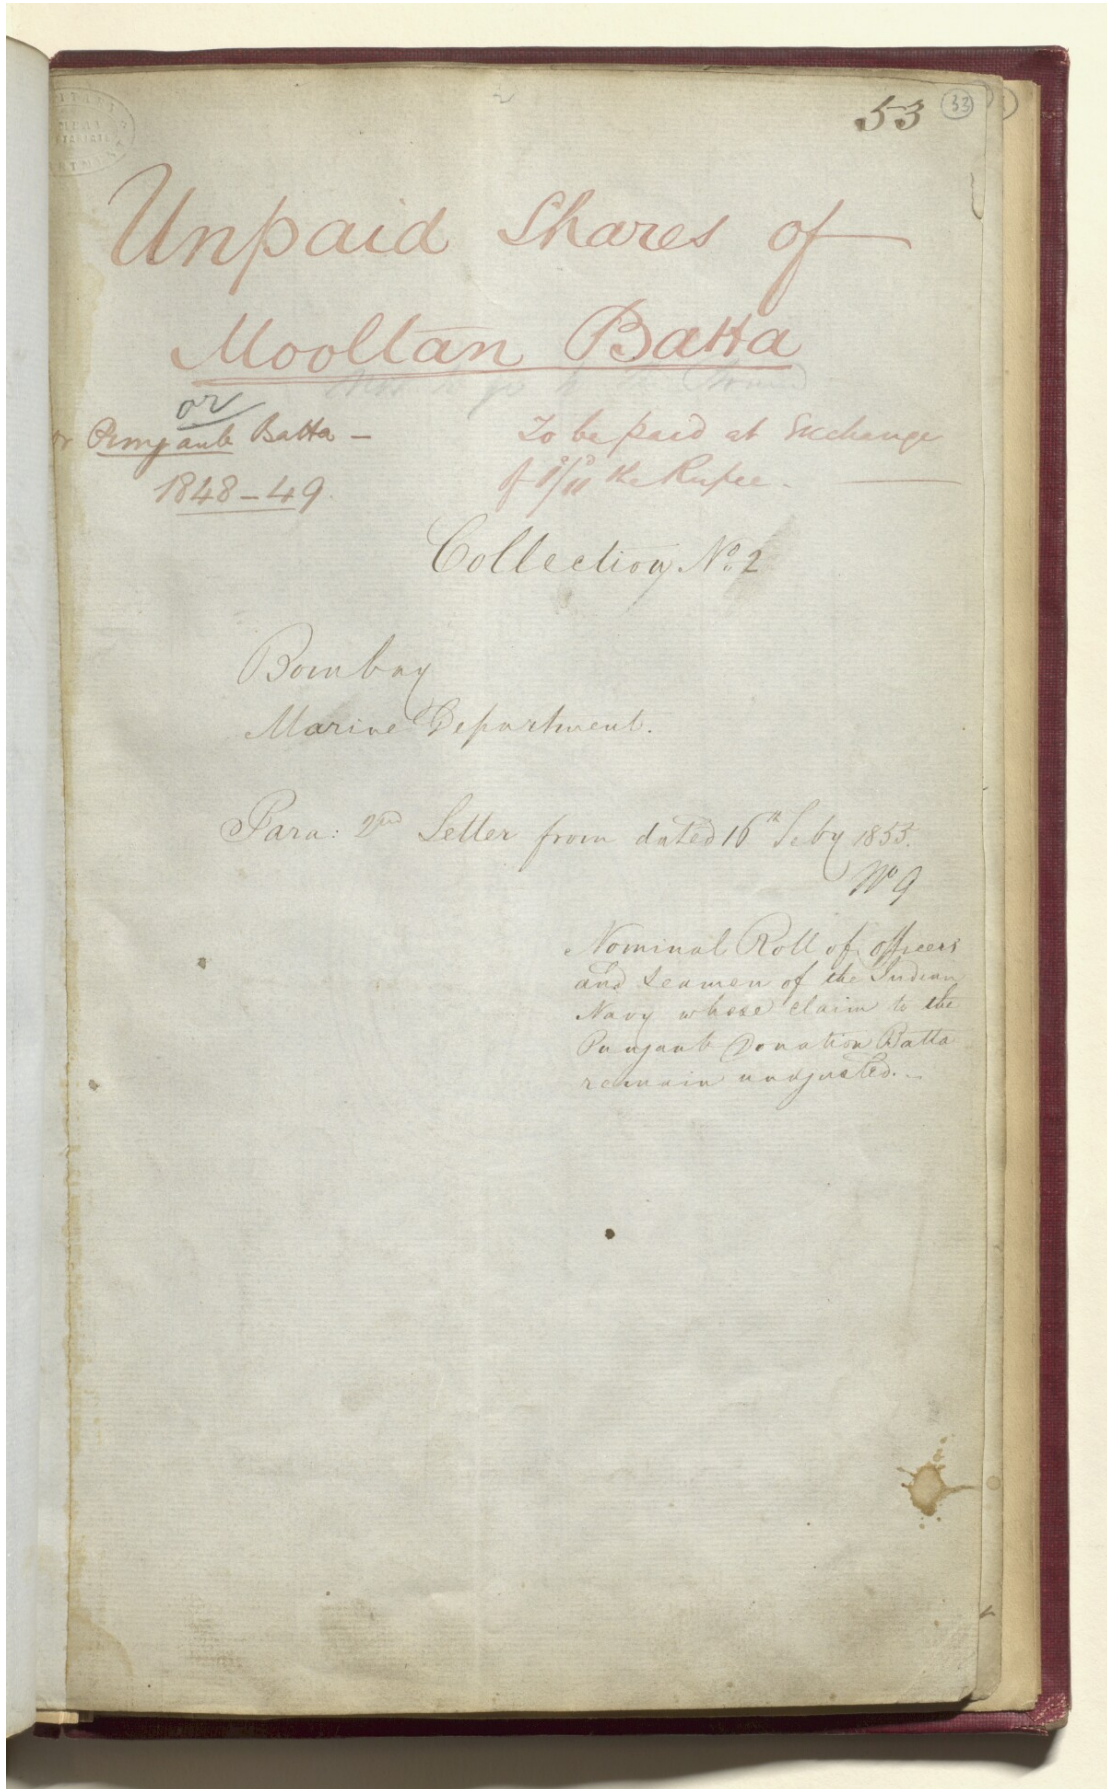 53 33
Unpaid Shares of
Mooltan Batta
or
or Punjaub Batta –
1848–49.
To be paid at Exchange
of 1/11 the Rupee.
Collection No. 2
Bombay
Marine Department.
Para: 2nd Letter from dated 16th Feby 1853.
No 9
Nominal Roll of officers
and Seamen of the Indian
Navy whose claim to the
Punjaub Donation Batta
remain unadjusted.